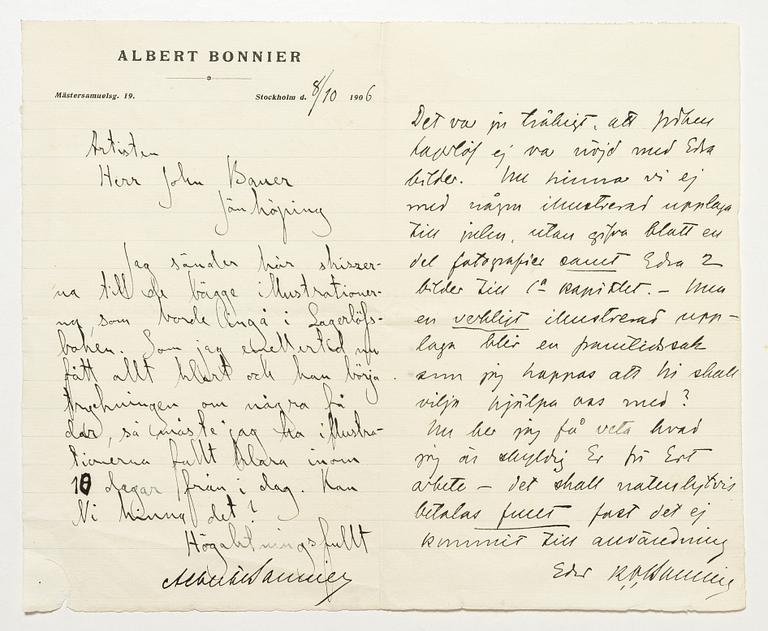 ALBERT BONNIER
Mästersamuelsg. 19.
Stockholm d. 8/10 1906
Artisten
Herr John Bauer
Jönköping
Jag sänder här skisser-
na till de bägge illustrationer-
na, som borde ingå i Lagerlöfs-
boken. Som jag emellertid nu
fått allt klart och kan börja
tryckningen om några få
dar, så måste jag ha illustra-
tionerna fullt klara inom
10 dagar från i dag. Kan
Ni hinna det?
Högaktningsfullt
Albert Bonnier
Det var ju tråkigt, att fröken
Lagerlöf ej var nöjd med Edra
bilder. Nu hinna vi ej
med någon illustrerad upplaga
till julen, utan gifva blott en
del fotografier samt Edra 2
bilder till 1a kapitlet. – Men
en verkligt illustrerad upp-
laga blir en framtidssak
som jag hoppas att Ni skall
vilja hjälpa oss med?
Nu ber jag få veta hvad
jag är skyldig Er för Ert
arbete – det skall naturligtvis
betalas fullt fast det ej
kommit till användning
Eder